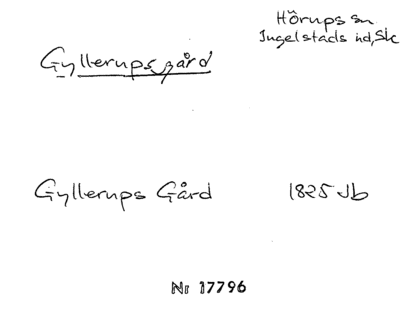 Hörups sn
Ingelstads hd, Sk
Gyllerupsgård
Gyllerups Gård 1825 Jb
Nr 17796